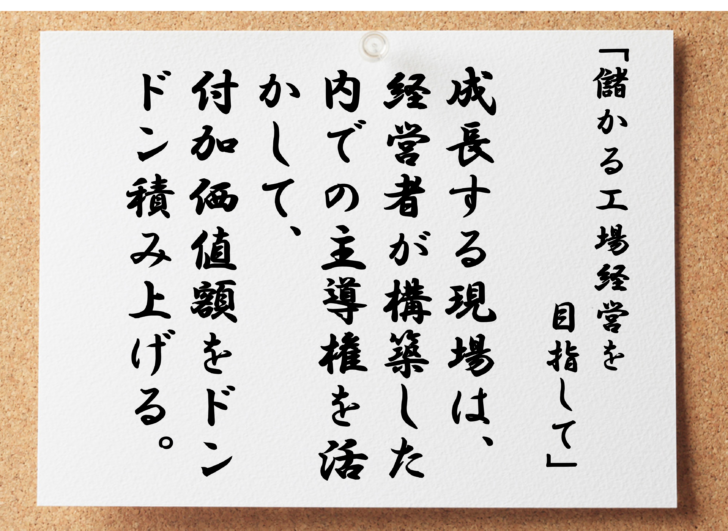 「儲かる工場経営を
目指して」
成長する現場は、
経営者が構築した
内での主導権を活
かして、
付加価値額をドン
ドン積み上げる。